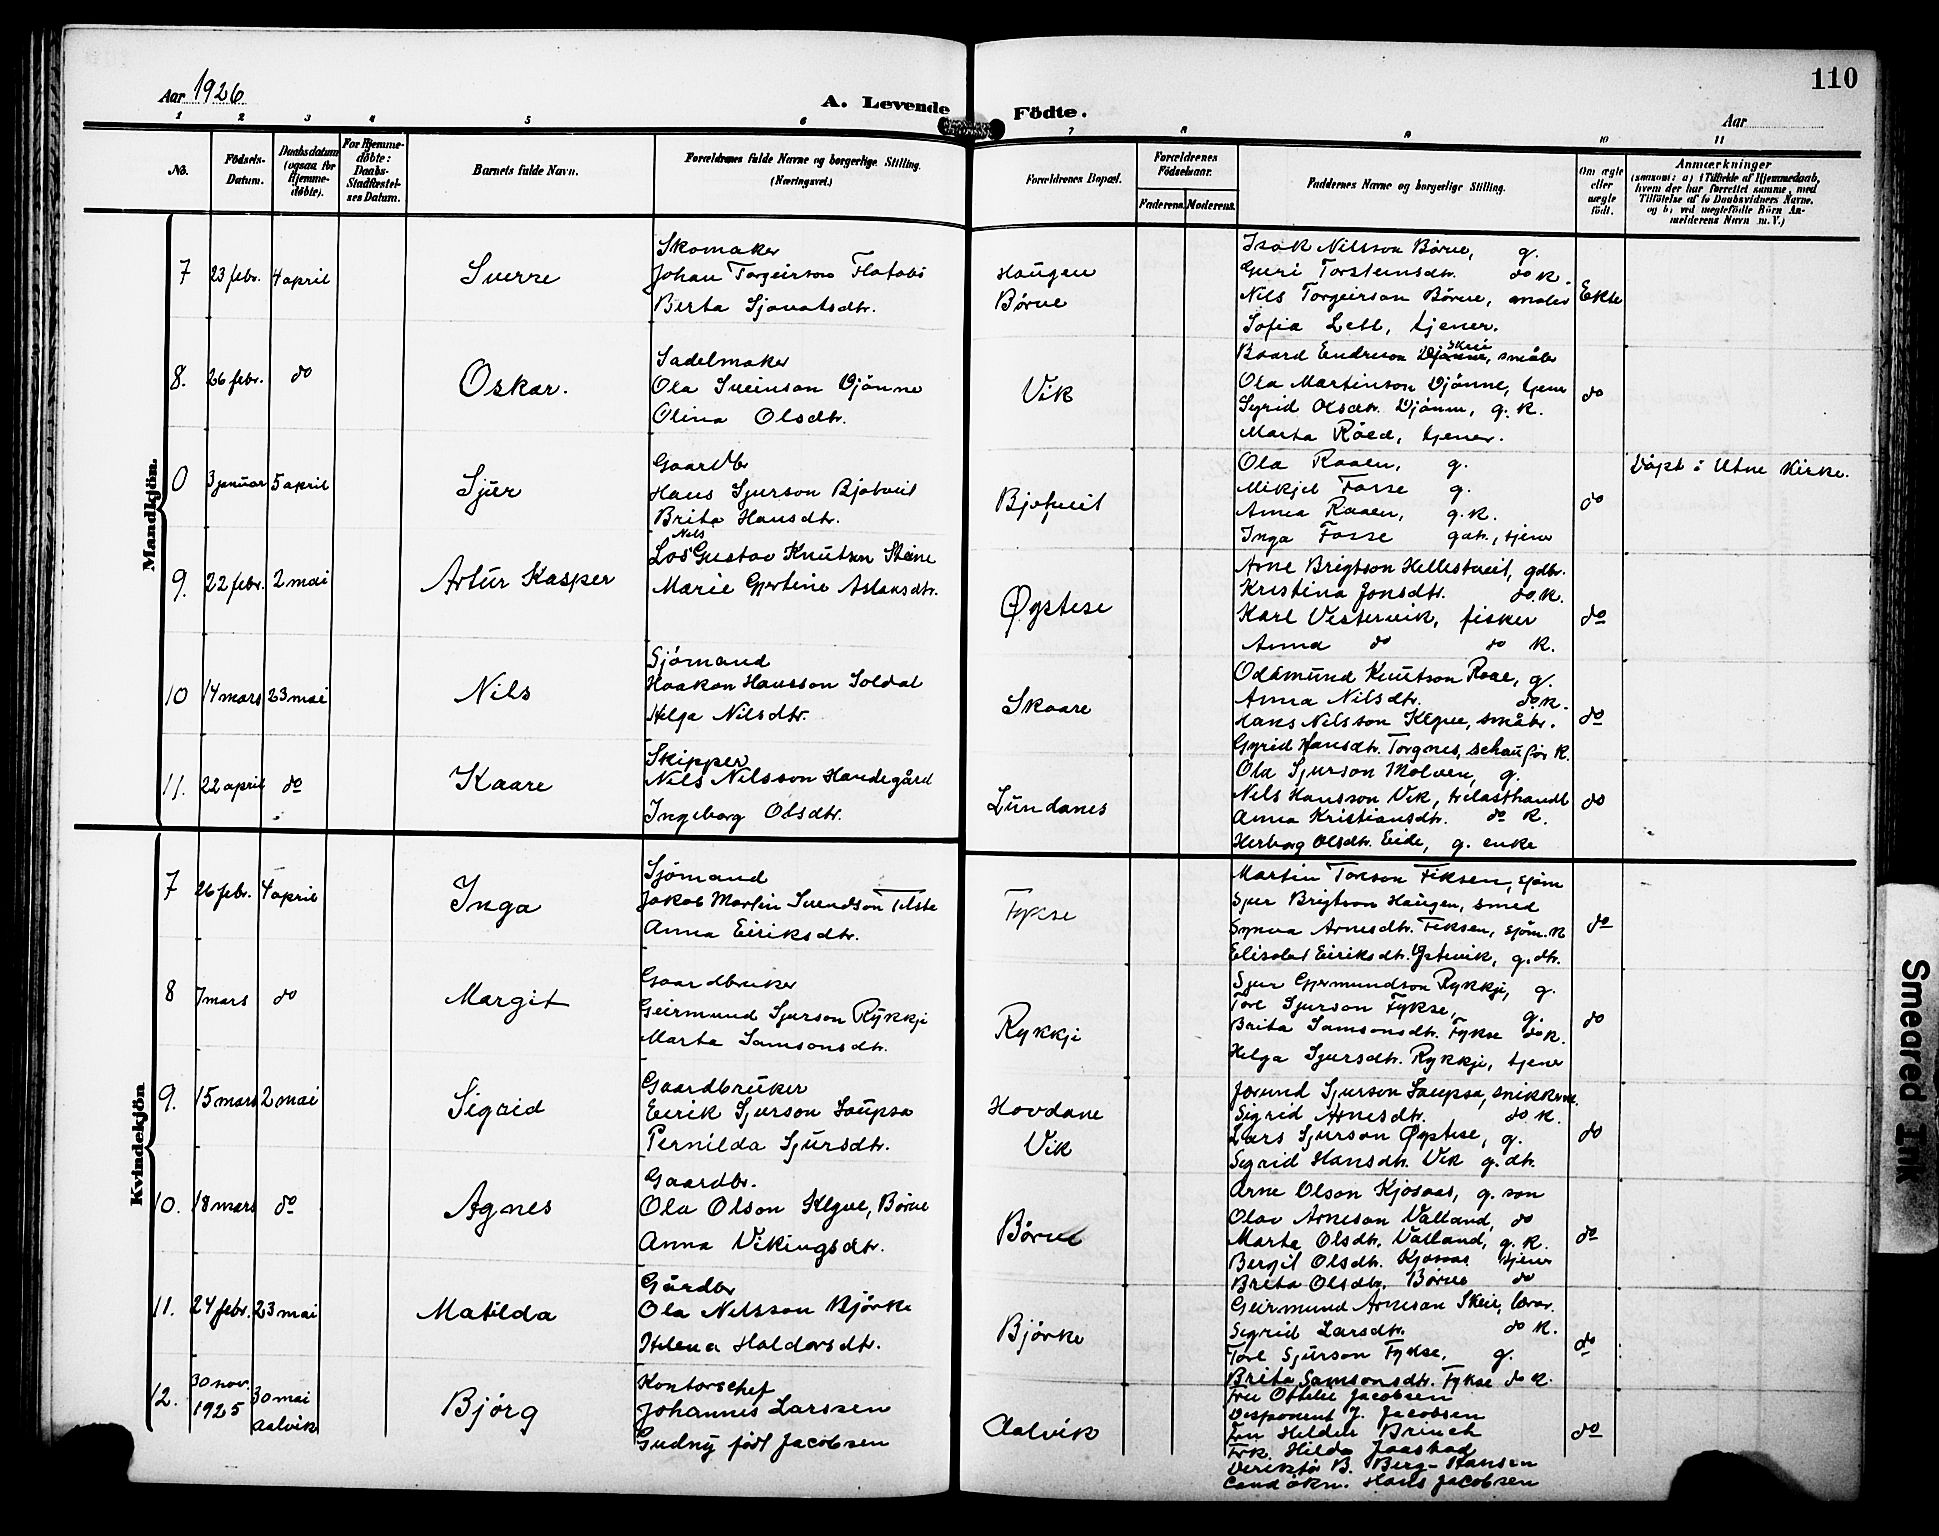 110
Aar 1926
A. Levende Födte.
Aar
1 2 3 4 5 6 7 8 9 10 11
No.
Födsels-Datum.
Daabsdatum (ogsaa for Hjemme-döbte).
For Hjemme-döbte: Daabs-Stadfæstel-ses Datum.
Barnets fulde Navn.
Forældrenes fulde Navne og borgerlige Stilling.
(Næringsvei.)
Forældrenes Bopæl.
Forældrenes Födselsaar.
Faderens. Moderens.
Faddernes Navne og borgerlige Stilling.
Om ægte eller uægte födt.
Anmærkninger
(saasom: a) i Tilfælde af Hjemmedaab,
hvem der har forrettet samme, med
Tilföielse af to Daabsvidners Navne,
og b) ved uægtefödte Börn An-
melderens Navn m. V.)
Mandkjön.
7 23 febr. 4 april Sverre
Skomaker
Johan Torgeirson Flatabö
Berta Sjovatsdtr.
Haugen
Børve
Isak Nilsson Børve, g.
Guri Torsteinsdtr. do k.
Nils Torgeirson Børve, maler
Sofia Lell, tjener.
Ekte
8. 26 febr. do Oskar.
Sadelmaker
Ola Sveinson Djönne
Olina Olsdtr.
Vik
Baard Endreson Djönne Skeie, småbr
Ola Martinson Djönne, tjener
Sigrid Olsdtr. Djönne, g. k.
Marta Röed, tjener.
do
0 3 januar 5 april Sjur
Gaardbr
Hans Sjurson Bjotveit
Brita Hansdtr.
Bjotveit
Ola Raaen, g.
Mikjel Fosse g.
Anna Raaen, g.k.
Inga Fosse gdtr., tjener
do
Döpt i Utne Kirke.
9. 22 febr. 2 mai Artur Kasper
Los Nils Gustav Knutson Steine
Marie Gjertine Aslaksdtr.
Øystese
Arne Brigtson Hellestveit, gdbr.
Kristina Jonsdtr. do. k.
Karl Vestervik, fisker
Anna do do k.
do
10 14 mars 23 mai Nils
Sjömand
Haakon Hansson Soldal
Helga Nilsdtr.
Skaare
Oddmund Knutson Raae, g.
Anna Nilsdtr. do k.
Hans Nilsson Klyve, småbr.
Gyrid Hansdtr. Torgnes, schauför k.
do
11. 22 april do Kaare
Skipper
Nils Nilsson Handegård
Ingeborg Olsdtr.
Lundanes
Ola Sjurson Molven, g.
Nils Hansson Vik, trelasthandl
Anna Kristiansdtr. do k.
Herborg Olsdtr. Eide, g. enke
do
Kvindekjön
7 26 febr. 4 april Inga
Sjömand
Jakob Martin Svendson Tilste
Anna Eiriksdtr.
Fykse
Martin Torson Fiksen, sjöm
Sjur Brigtson Haugen, smed
Synva Arnesdtr. Fiksen, sjöm. k
Elisabet Eiriksdtr. Ystevik, g. dtr.
do
8 7 mars do Margit
Gaardbruker
Geirmund Sjurson Rykkje
Marta Samsonsdtr.
Rykkje
Sjur Gjermundson Rykkje, g.
Torl Sjurson Fykse, g.
Brita Samsonsdtr. Fykse do k.
Helga Sjursdtr. Rykkje, tjener
do
9. 15 mars 2 mai Sigrid
Gaardbruker
Eirik Sjurson Laupsa
Pernilda Sjursdtr.
Hovdane
Vik
Jorund Sjurson Laupsa, snikker
Sigrid Arnesdtr. do k.
Lars Sjurson Øystese, g.
Sigrid Hansdtr. Vik g. dtr.
do
10. 18 mars do Agnes
Gaardbr.
Ola Olson Klyve, Börve
Anna Vikingsdtr.
Börve
Arne Olson Kjosaas, g. son
Olav Arneson Valland, do
Marta Olsdtr. Valland, g. k.
Bergit Olsdtr. Kjosaas tjener
Brita Olsdtr. Börve do
do
11. 24 febr. 23 mai Matilda
Gårdbr
Ola Nilsson Björke
Helena Haldorsdtr.
Bjørke
Geirmund Arneson Skeie, lærar.
Sigrid Larsdtr. do k.
Torl Sjurson Fykse, g.
Brita Samsonsdtr. Fykse do k.
do
12. 30 nov. 1925 30 mai Aalvik Bjørg
Kontorschef
Johannes Larssen
Gudny født Jacobsen
Aalvik
Fru Ottilie Jacobsen
Disponent J. Jacobsen
Frk Hilda Jaastad
Direktör B. Berg-Hansen
Cand ökn. Hans Jacobsen
do
Smeared Ink